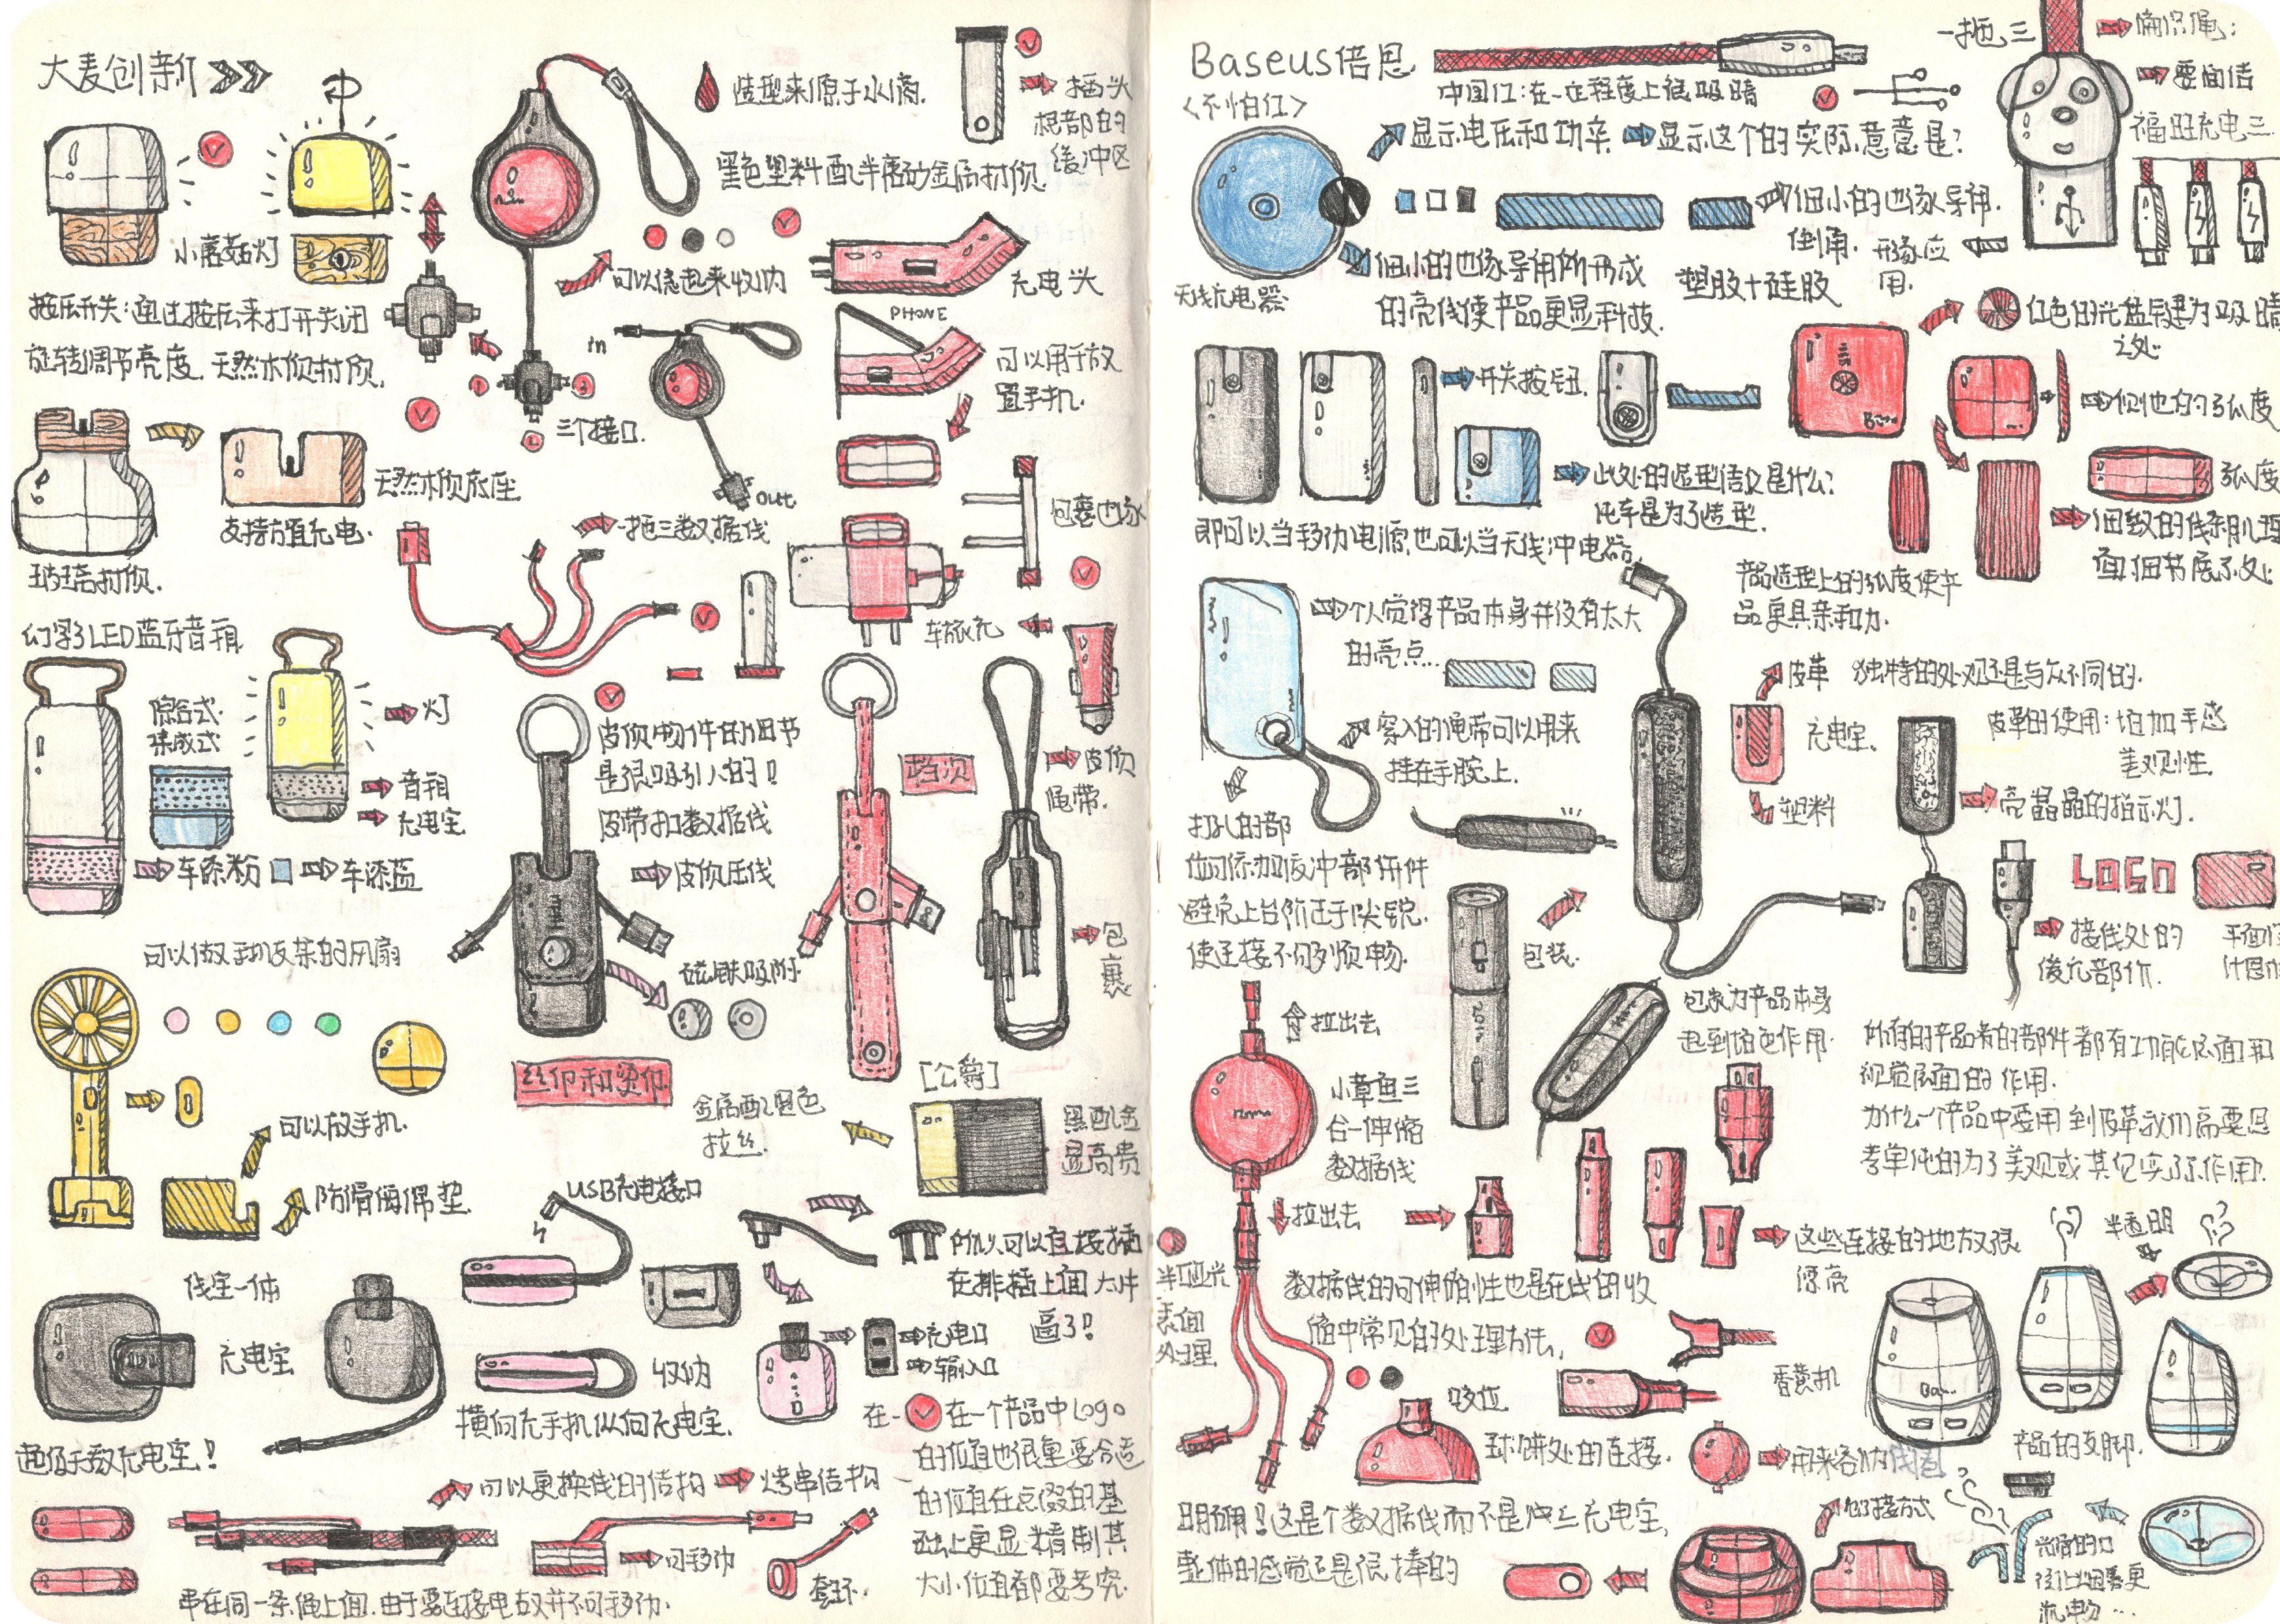 大麦创新
小蘑菇灯
按压开关:通过按压来打开关闭
旋转调节亮度.天然木质材质.
天然木质底座
支持立置充电.
玻璃材质.
幻彩LED蓝牙音箱
综合式
集成式
灯
音箱
充电宝
车漆粉
车漆蓝
可以做手机支架的风扇
可以放手机.
防滑硅胶垫.
线宝一体
充电宝
超值干教充电宝!
造型来源于水滴.
黑色塑料配半磨砂金属材质.
可以绕起来收纳
三个接口.
in
out
插头
根部的
缓冲区
充电头
PHONE
可以用于放
置手机.
包裹边缘
一拖三数据线
车旅充
皮质物件的细节
是很吸引人的!
皮带扣数据线
皮质压线
磁铁吸附
丝印和烫印
档次
皮质
绳带.
包
裹
[公爵]
金属配黑色
拉丝.
黑配金
显高贵
USB充电接口
所以可以直接插
在排插上面太牛
逼了!
收纳
充电口
输入口
横向充手机纵向充电宝.
在一个产品中Logo
的位置也很重要合适
的位置在点缀的基
础上更显精制其
大小位置都要考究
可以更换线的结构
烤串结构
可移动
套环.
串在同一条绳上面.由于要连接电故并不可移动.
Baseus倍思
<不怕红>
中国红:在一定程度上很吸睛
一拖三
福旺充电三
显示电压和功率
显示这个的实际意义是?
细小的边缘导用
倒角.
形象应
用.
无线充电器
细小的边缘导角所形成
的亮线使产品更显科技.
塑胶+硅胶
红色的光盘键为吸睛
之处
开关按钮.
侧边的弧度
弧度
此处的造型结义是什么?
纯车是为了造型.
即可以当移动电源也可以当无线冲电器.
细致的线条肌理
面细节展示处
产品造型上的弧度使产
品更具亲和力.
个人觉得产品本身并没有太大
的亮点...
穿入的绳带可以用来
挂在手腕上.
打孔的部
位可添加缓冲部件
避免上台阶过于尖锐.
使连接不够顺畅.
皮革
独特的外观还是与众不同的.
充电宝.
塑料
皮革的使用:增加手感
美观性.
亮晶晶的指示灯.
LOGO
接线处的
缓冲部分.
包装.
包装为产品本身
起到配色作用.
所有的产品有的部件都有功能层面和
视觉层面的作用.
为什么一个产品中要用到皮革我们需要思
考单纯的为了美观或其它实际作用.
拉出去
小章鱼三
合一伸缩
数据线
拉出去
半哑光
表面
处理.
这些连接的地方很
漂亮
数据线的可伸缩性也是在线的收
缩中常见的处理方法.
半透明
香薰机
球饼处的连接.
用来容纳线圈
产品的支脚.
明确!这是个数据线而不是什么充电宝,
整体的感觉还是很棒的